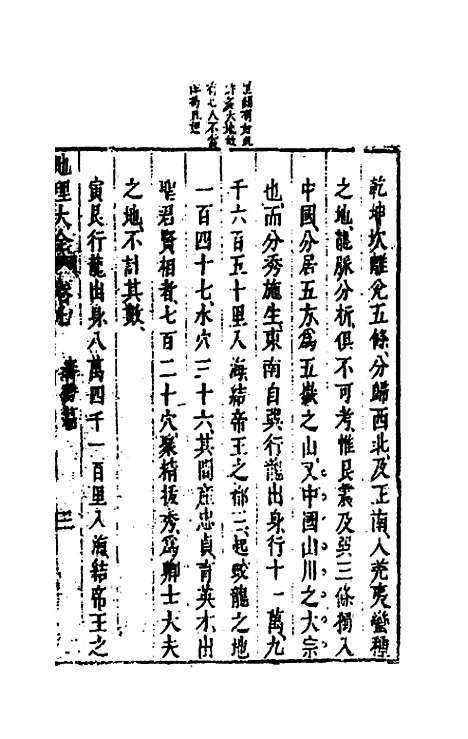 乾坤坎離兌五條分歸西北及正南入羌夷蠻種
之地龍脉分析俱不可考惟艮震及巽三條獨入
中國分居五東為五嶽之山又中國山川之大宗
也而分秀施生東南自巽行龍出身行十一萬九
千六百五十里入海結帝王之都三起蛟龍之地
一百四十七水穴三十六其間產忠貞育英才出
聖君賢相者七百二十穴聚精拔秀為卿士大夫
之地不計其數
寅艮行龍出身八萬四千一百里入海結帝王之
地理大全 卷九 三